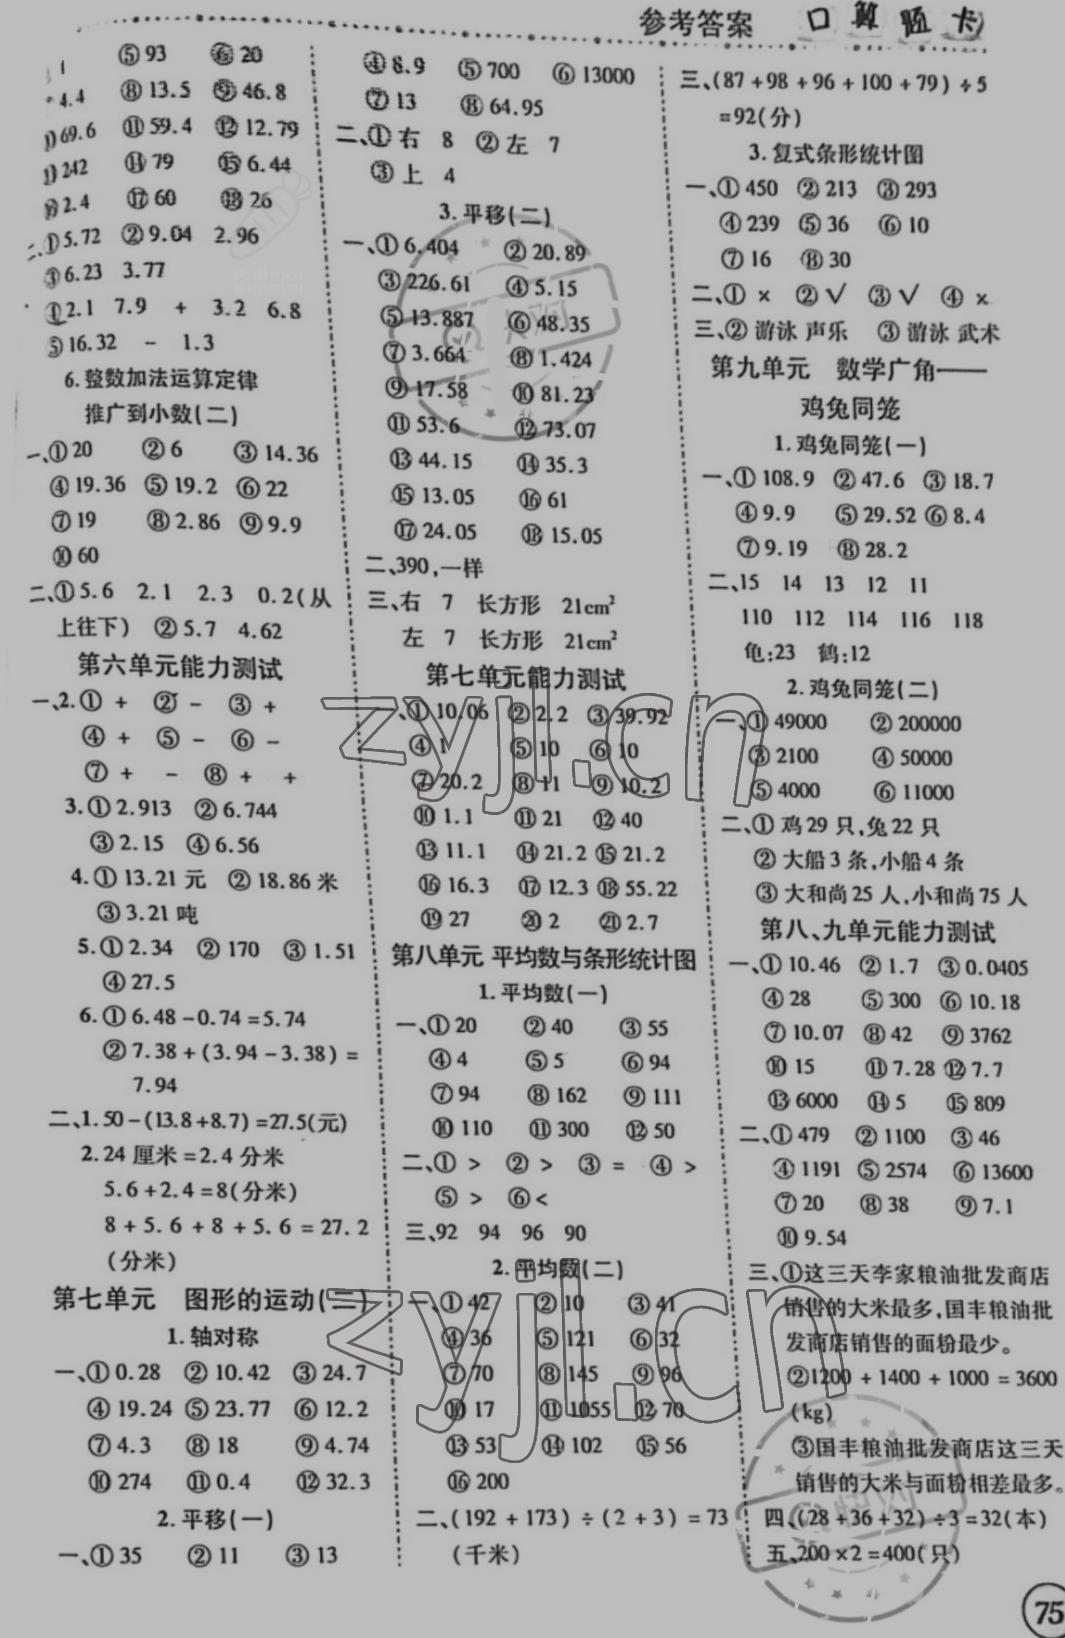 参考答案 口算题卡
1 ⑤93 ⑥20
4.4 ⑧13.5 ⑨46.8
69.6 ⑪59.4 ⑫12.79
242 ⑭79 ⑮6.44
⑯2.4 ⑰60 ⑱26
二、①5.72 ②9.04 2.96
③6.23 3.77
④2.1 7.9 + 3.2 6.8
⑤16.32 - 1.3
6.整数加法运算定律
推广到小数(二)
一、①20 ②6 ③14.36
④19.36 ⑤19.2 ⑥22
⑦19 ⑧2.86 ⑨9.9
⑩60
二、①5.6 2.1 2.3 0.2(从
上往下) ②5.7 4.62
第六单元能力测试
一、2.①+ ②- ③+
④+ ⑤- ⑥-
⑦+ - ⑧+ +
3.①2.913 ②6.744
③2.15 ④6.56
4.①13.21元 ②18.86米
③3.21吨
5.①2.34 ②170 ③1.51
④27.5
6.①6.48-0.74=5.74
②7.38+(3.94-3.38)=
7.94
二、1.50-(13.8+8.7)=27.5(元)
2.24厘米=2.4分米
5.6+2.4=8(分米)
8+5.6+8+5.6=27.2
(分米)
第七单元 图形的运动(二)
1.轴对称
一、①0.28 ②10.42 ③24.7
④19.24 ⑤23.77 ⑥12.2
⑦4.3 ⑧18 ⑨4.74
⑩274 ⑪0.4 ⑫32.3
2.平移(一)
一、①35 ②11 ③13
④8.9 ⑤700 ⑥13000
⑦13 ⑧64.95
二、①右 8 ②左 7
③上 4
3.平移(二)
一、①6.404 ②20.89
③226.61 ④5.15
⑤13.887 ⑥48.35
⑦3.664 ⑧1.424
⑨17.58 ⑩81.23
⑪53.6 ⑫73.07
⑬44.15 ⑭35.3
⑮13.05 ⑯61
⑰24.05 ⑱15.05
二、390,一样
三、右 7 长方形 21cm²
左 7 长方形 21cm²
第七单元能力测试
一、①10.06 ②2.2 ③39.92
④1 ⑤10 ⑥10
⑦20.2 ⑧11 ⑨10.2
⑩1.1 ⑪21 ⑫40
⑬11.1 ⑭21.2 ⑮21.2
⑯16.3 ⑰12.3 ⑱55.22
⑲27 ⑳2 ㉑2.7
第八单元 平均数与条形统计图
1.平均数(一)
一、①20 ②40 ③55
④4 ⑤5 ⑥94
⑦94 ⑧162 ⑨111
⑩110 ⑪300 ⑫50
二、①> ②> ③= ④>
⑤> ⑥<
三、92 94 96 90
2.平均数(二)
一、①42 ②10 ③41
④36 ⑤121 ⑥32
⑦70 ⑧145 ⑨96
⑩17 ⑪1055 ⑫70
⑬53 ⑭102 ⑮56
⑯200
二、(192+173)÷(2+3)=73
(千米)
三、(87+98+96+100+79)÷5
=92(分)
3.复式条形统计图
一、①450 ②213 ③293
④239 ⑤36 ⑥10
⑦16 ⑧30
二、①× ②√ ③√ ④×
三、②游泳 声乐 ③游泳 武术
第九单元 数学广角——
鸡兔同笼
1.鸡兔同笼(一)
一、①108.9 ②47.6 ③18.7
④9.9 ⑤29.52 ⑥8.4
⑦9.19 ⑧28.2
二、15 14 13 12 11
110 112 114 116 118
龟:23 鹤:12
2.鸡兔同笼(二)
一、①49000 ②200000
③2100 ④50000
⑤4000 ⑥11000
二、①鸡29只,兔22只
②大船3条,小船4条
③大和尚25人,小和尚75人
第八、九单元能力测试
一、①10.46 ②1.7 ③0.0405
④28 ⑤300 ⑥10.18
⑦10.07 ⑧42 ⑨3762
⑩15 ⑪7.28 ⑫7.7
⑬6000 ⑭5 ⑮809
二、①479 ②1100 ③46
④1191 ⑤2574 ⑥13600
⑦20 ⑧38 ⑨7.1
⑩9.54
三、①这三天李家粮油批发商店
销售的大米最多,国丰粮油批
发商店销售的面粉最少。
②1200+1400+1000=3600
(kg)
③国丰粮油批发商店这三天
销售的大米与面粉相差最多。
四、(28+36+32)÷3=32(本)
五、200×2=400(只)
75
zyjl.cn
zyjl.cn